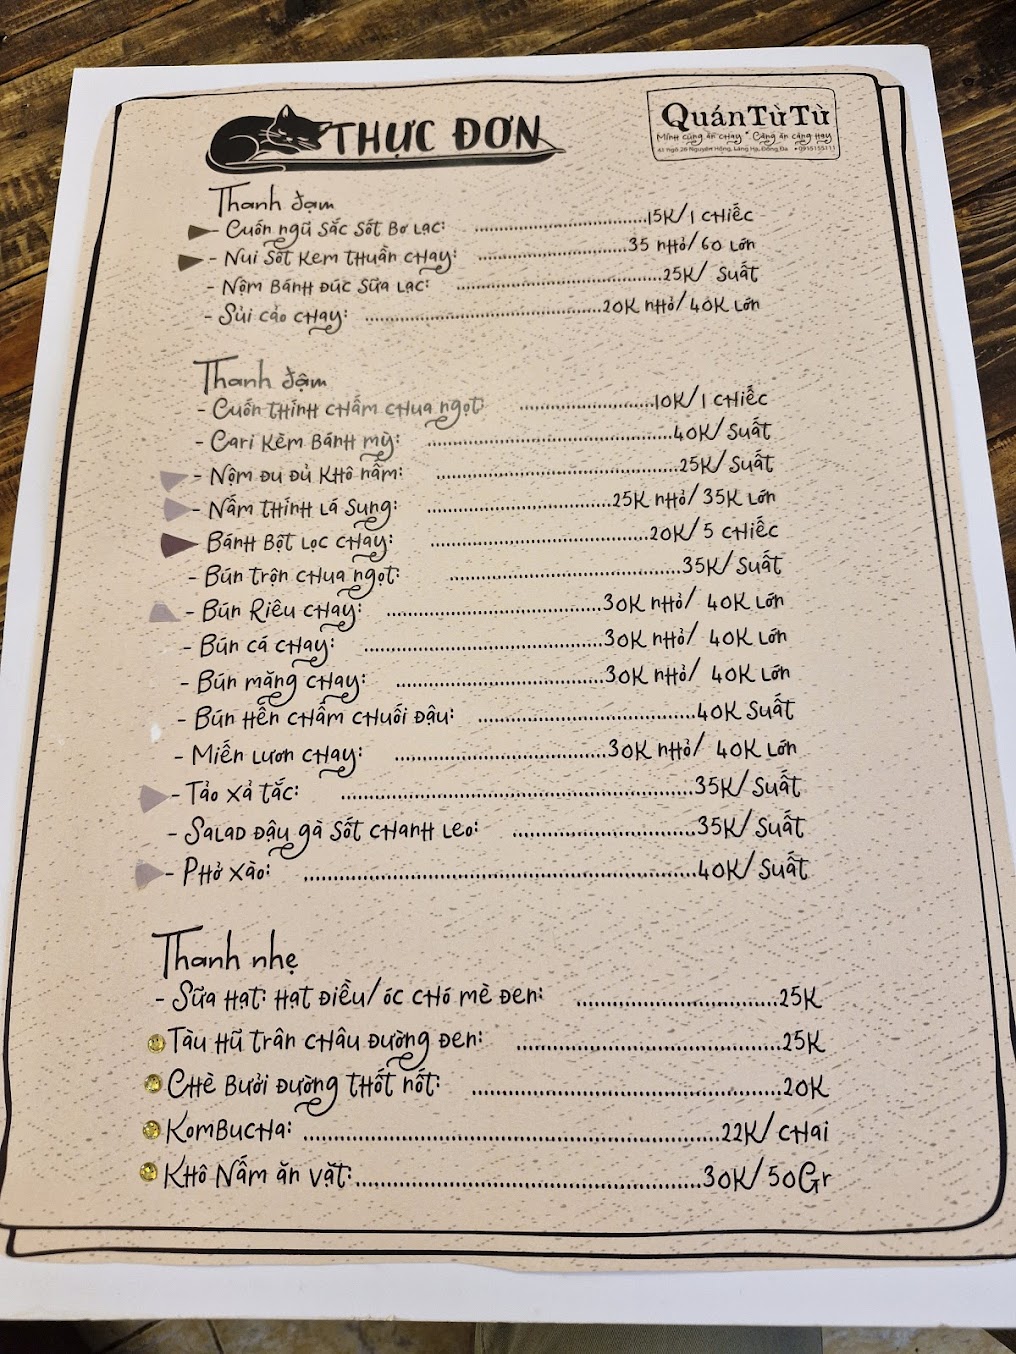 THỰC ĐƠN
Quán Từ Từ
Mình cùng ăn chay * Càng ăn càng hay
41 ngõ 26 Nguyên Hồng, Láng Hạ, Đống Đa
Thanh đạm
- Cuốn ngũ sắc sốt bơ lạc: ........................15K/1 chiếc
- Nui sốt kem thuần chay: ........................35 nhỏ/60 lớn
- Nộm bánh đúc sữa lạc: ........................25K/ suất
- Sủi cảo chay: ........................20K nhỏ/40K lớn
Thanh đậm
- Cuốn thính chấm chua ngọt ........................10K/1 chiếc
- Cari kèm bánh mỳ: ........................40K/suất
- Nộm đu đủ khô nấm: ........................25K/suất
- Nấm thính lá sung: ........................25K nhỏ/35K lớn
Bánh bột lọc chay: ........................20K/5 chiếc
- Bún trộn chua ngọt: ........................35K/suất
- Bún riêu chay: ........................30K nhỏ/ 40K lớn
- Bún cá chay: ........................30K nhỏ/ 40K lớn
- Bún măng chay: ........................30K nhỏ/ 40K lớn
- Bún hến chấm chuối đậu: ........................40K suất
- Miến lươn chay: ........................30K nhỏ/ 40K lớn
- Tảo xả tắc: ........................35K/suất
- Salad đậu gà sốt chanh leo: ........................35K/suất
- Phở xào: ........................40K/suất
Thanh nhẹ
- Sữa hạt: hạt điều/óc chó mè đen: ........................25K
Tàu hũ trân châu đường đen: ........................25K
Chè bưởi đường thốt nốt: ........................20K
Kombucha: ........................22K/chai
Khô nấm ăn vặt:........................30K/50Gr